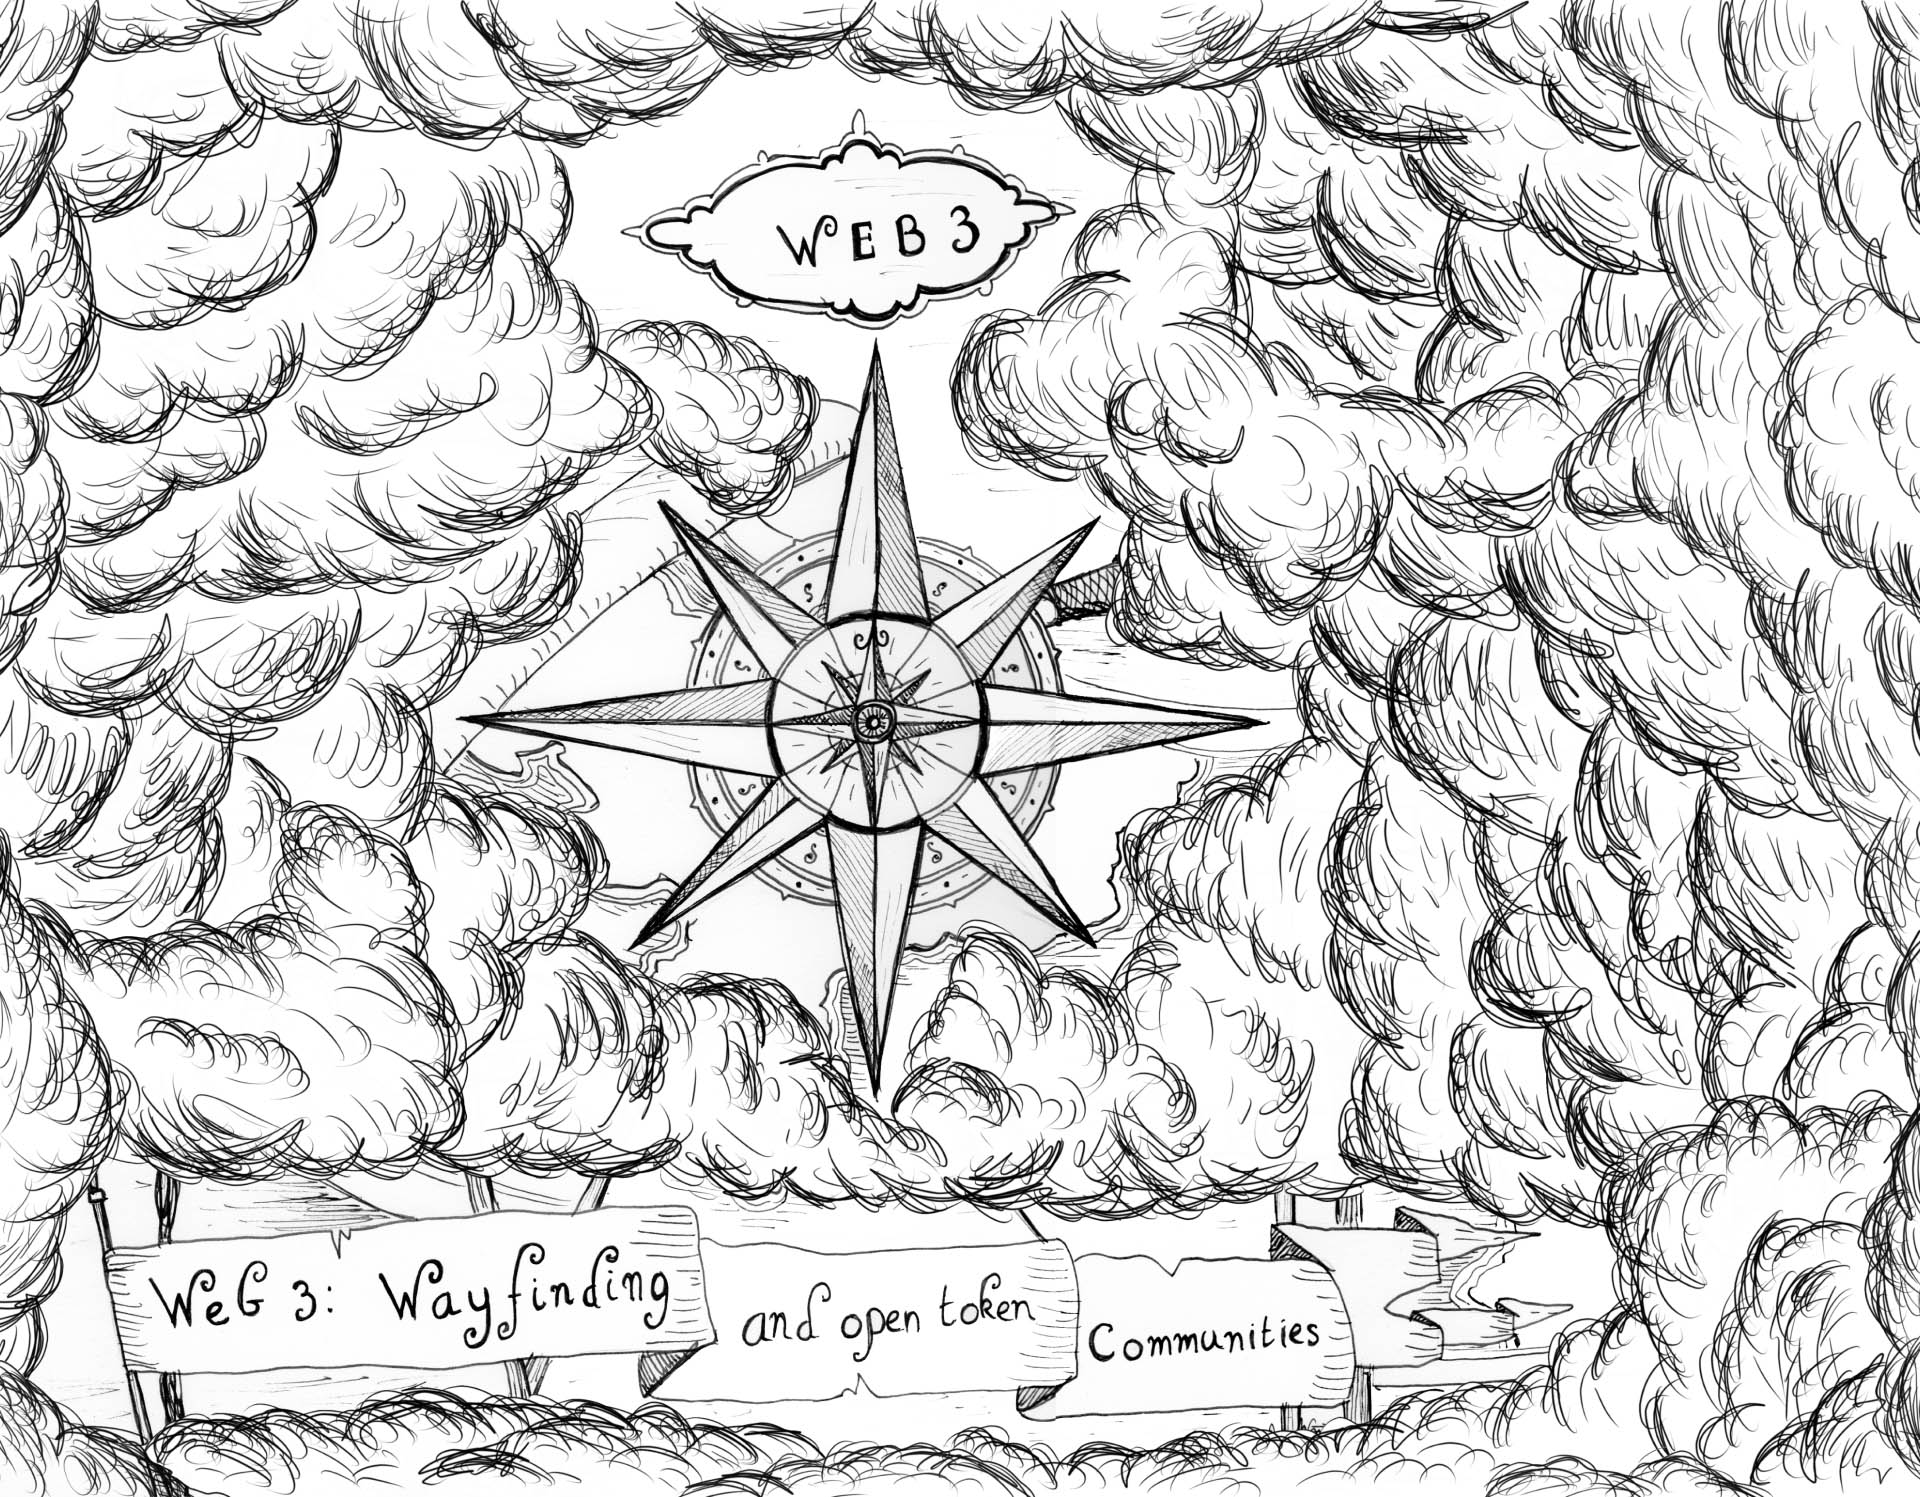 WEB 3
Web 3: Wayfinding
and open token
Communities